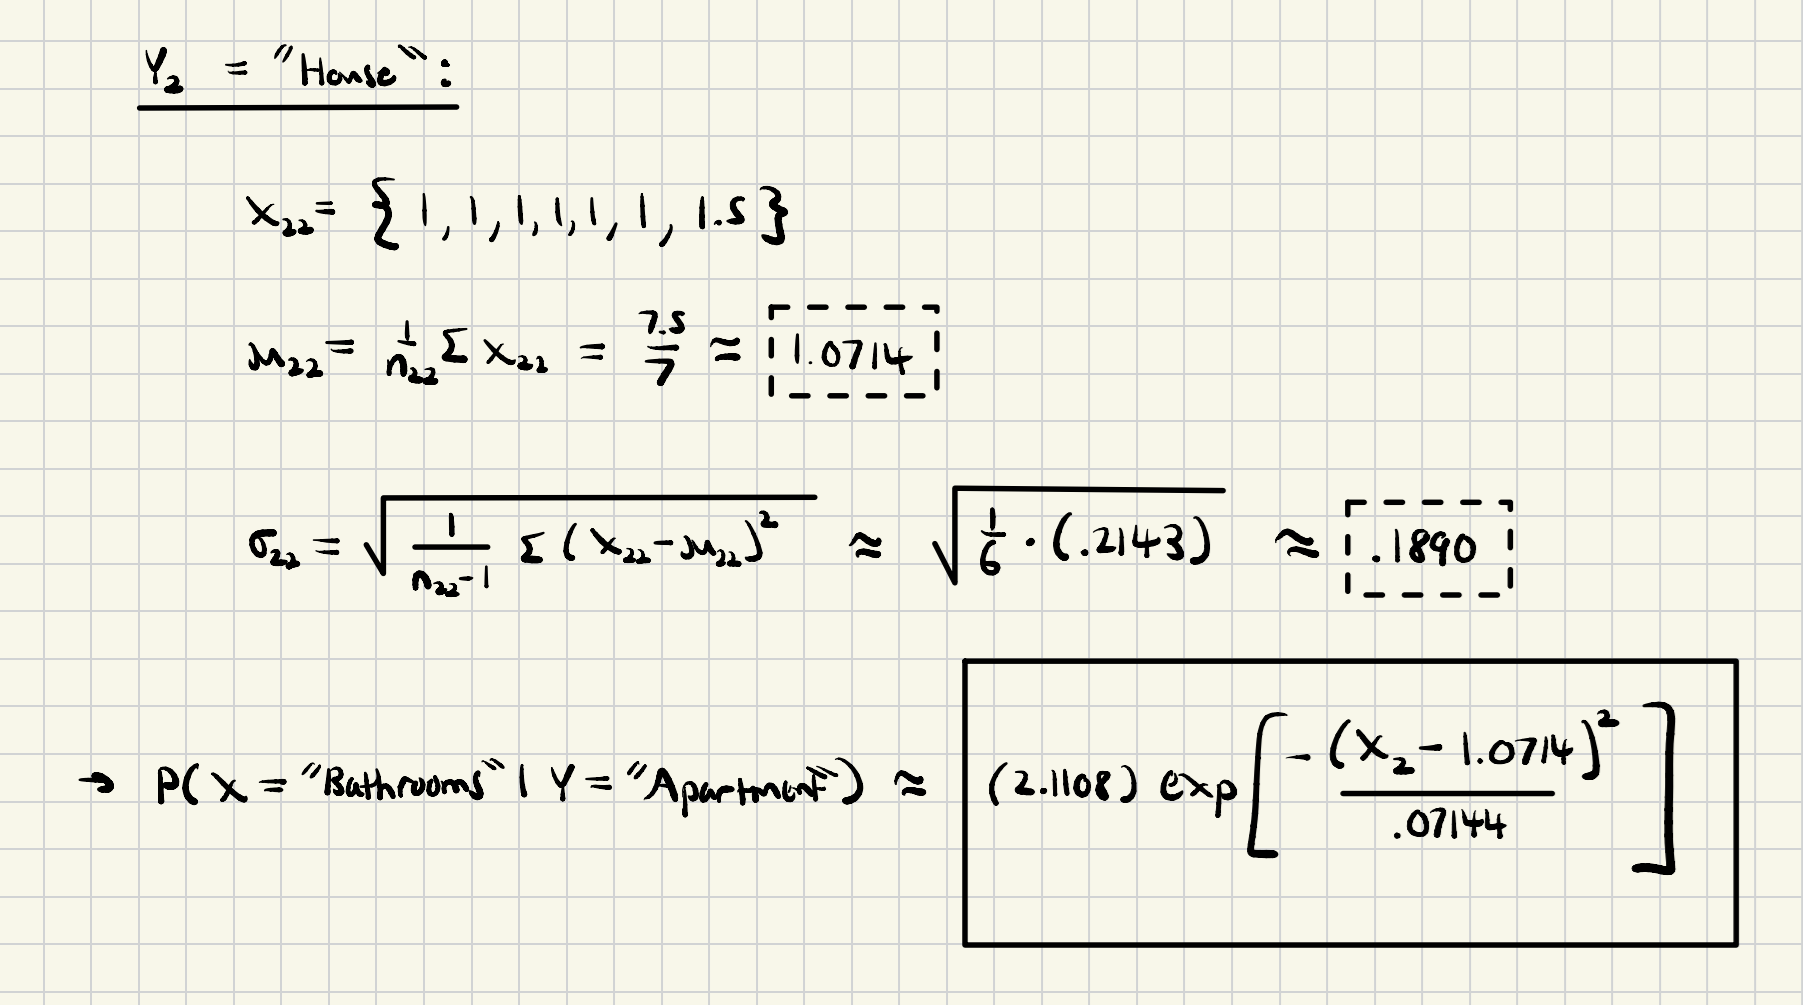 Y₂ = "House":
X₂₂ = { 1, 1, 1, 1, 1, 1, 1.5 }
μ₂₂ = 1/n₂₂ Σ X₂₂ = 7.5/7 ≈ 1.0714
σ₂₂ = √(1/(n₂₂-1) Σ (X₂₂-μ₂₂)²) ≈ √(1/6 · (.2143)) ≈ .1890
→ P( X = "Bathrooms" | Y = "Apartment") ≈ (2.1108) exp[ -(X₂-1.0714)²/.07144 ]